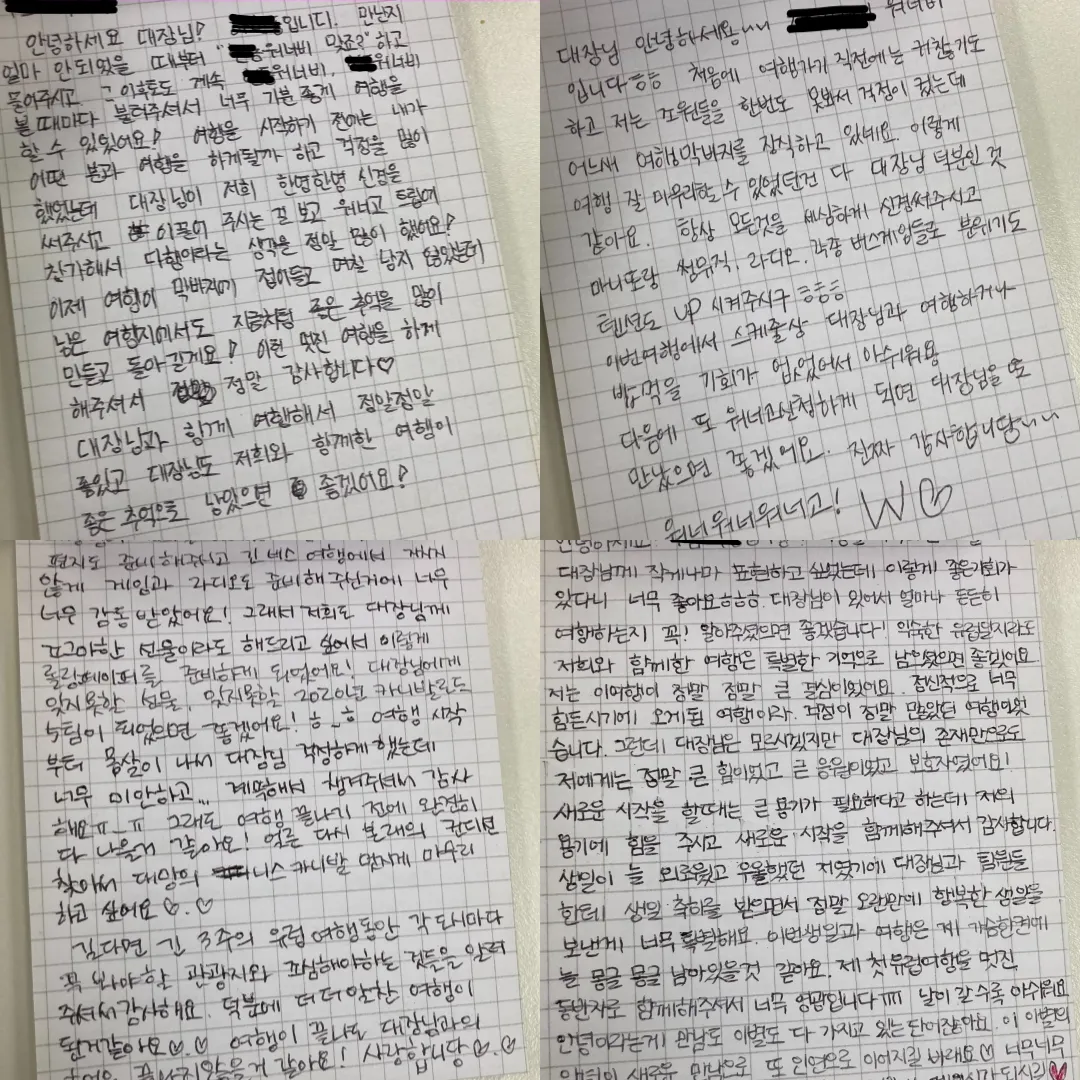 안녕하세요 대장님! 입니다. 만난지
얼마 안되었을 때부터 "워너비 맞죠?" 하고
물어주시고 그 이후로도 계속 워너비, 워너비
볼때마다 불러주셔서 너무 기분 좋게 여행을
할 수 있었어요! 여행을 시작하기 전에는 내가
어떤 분과 여행을 하게될까 하고 걱정을 많이
했었는데 대장님이 저희 한명한명 신경을
써주시고 이끌어 주시는 걸 보고 워너고 트립에
참가해서 다행이라는 생각을 정말 많이 했어요!
이제 여행이 막바지에 접어들고 며칠 남지 않았는데
남은 여행지에서도 지금처럼 좋은 추억을 많이
만들고 돌아갈게요! 이런 멋진 여행을 하게
해주셔서 정말 감사합니다♡
대장님과 함께 여행해서 정말정말
좋았고 대장님도 저희와 함께한 여행이
좋은 추억으로 남았으면 좋겠어요!
대장님 안녕하세요~~ 워너비
입니다ㅎㅎ 처음에 여행가기 직전에는 귀찮기도
하고 저는 조원들을 한번도 못봐서 걱정이 컸는데
어느새 여행막바지를 장식하고 있네요. 이렇게
여행 잘 마무리할 수 있었던건 다 대장님 덕분인 것
같아요. 항상 모든것을 세심하게 신경써주시고
마니또랑 썸뮤직, 라디오, 각종 버스게임들로 분위기도
텐션도 UP 시켜주시구 ㅎㅎㅎ
이번여행에서 스케줄상 대장님과 여행하거나
밥먹을 기회가 없었어서 아쉬워용
다음에 또 워너고신청하게 되면 대장님을 또
만났으면 좋겠어요. 진짜 감사합니당~~
워너워너워너고! W♡
편지도 준비해주시고 긴 버스 여행에서 지치지
않게 게임과 라디오도 준비해 주신거에 너무
너무 감동 받았어요! 그래서 저희도 대장님께
조그마한 선물이라도 해드리고 싶어서 이렇게
롤링페이퍼를 준비하게 되었어요! 대장님에게
잊지못할 선물, 잊지못할 2020년 카니발로드
팀이 되었으면 좋겠어요! ㅎ_ㅎ 여행 시작
부터 몸살이 나서 대장님 걱정하게 했는데
너무 미안하고... 계속해서 챙겨주셔서 감사
해요ㅠ_ㅠ 그래도 여행 끝나기 전에 완전히
다 나을거 같아요! 얼른 다시 본래의 컨디션
찾아서 대망의 니스카니발 멋지게 마무리
하고 싶어요♡.♡
길다면 긴 3주의 유럽여행동안 각 도시마다
꼭 봐야할 관광지와 조심해야하는 것들을 알려
주셔서 감사해요. 덕분에 더더 알찬 여행이
된거같아요♡.♡ 여행이 끝나도 대장님과의
끝나지않을거 같아요! 사랑합니당♡.♡
안녕하세요
대장님께 작게나마 표현하고 싶었는데 이렇게 좋은기회가
있다니 너무 좋아요ㅎㅎㅎ. 대장님이 있어서 얼마나 든든히
여행하는지 꼭! 알아주셨으면 좋겠습니다! 익숙한 유럽일지라도
저희와 함께한 여행은 특별한 기억으로 남으셨으면 좋겠어요
저는 이여행이 정말 정말 큰 결심이었어요. 정신적으로 너무
힘든시기에 오게된 여행이라, 걱정이 정말 많았던 여행이었
습니다. 그런데 대장님은 모르시겠지만 대장님의 존재만으로도
저에게는 정말 큰 힘이었고 큰 응원이었고 보호자였어요!
새로운 시작을 할때는 큰 용기가 필요하다고 하는데 저의
용기에 힘을 주시고 새로운 시작을 함께해주셔서 감사합니다.
생일이 늘 외로웠고 우울했던 저였기에 대장님과 팀원들
한테 생일 축하를 받으면서 정말 오랜만에 행복한 생일을
보낸게 너무 특별해요. 이번생일과 여행은 제 가슴한켠에
늘 몽글 몽글 남아있을것 같아요. 제 첫유럽여행을 멋진
동반자로 함께해주셔서 너무 영광입니다ㅠㅠ 날이 갈수록 아쉬워요
안녕이라는게 만남도 이별도 다 가지고 있는 단어잖아요. 이 이별의
안녕이 새로운 만남으로 또 인연으로 이어지길 바래요♡ 너무너무